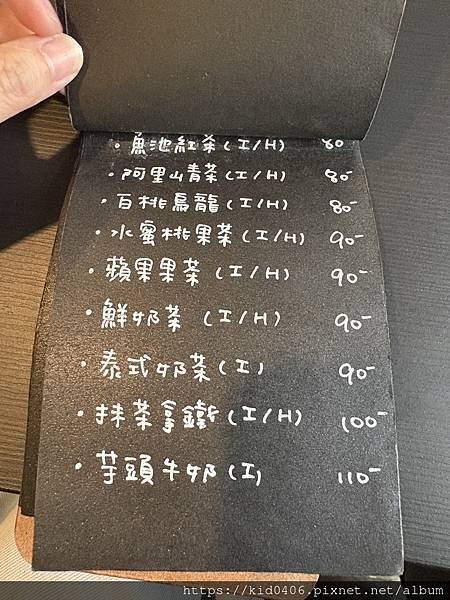 ・魚池紅茶(I/H) 80-
・阿里山青茶(I/H) 80-
・白桃烏龍(I/H) 80-
・水蜜桃果茶(I/H) 90-
・蘋果果茶(I/H) 90-
・鮮奶茶(I/H) 90-
・泰式奶茶(I) 90-
・抹茶拿鐵(I/H) 100-
・芋頭牛奶(I) 110-
https://kid0406.pixnet.net/album